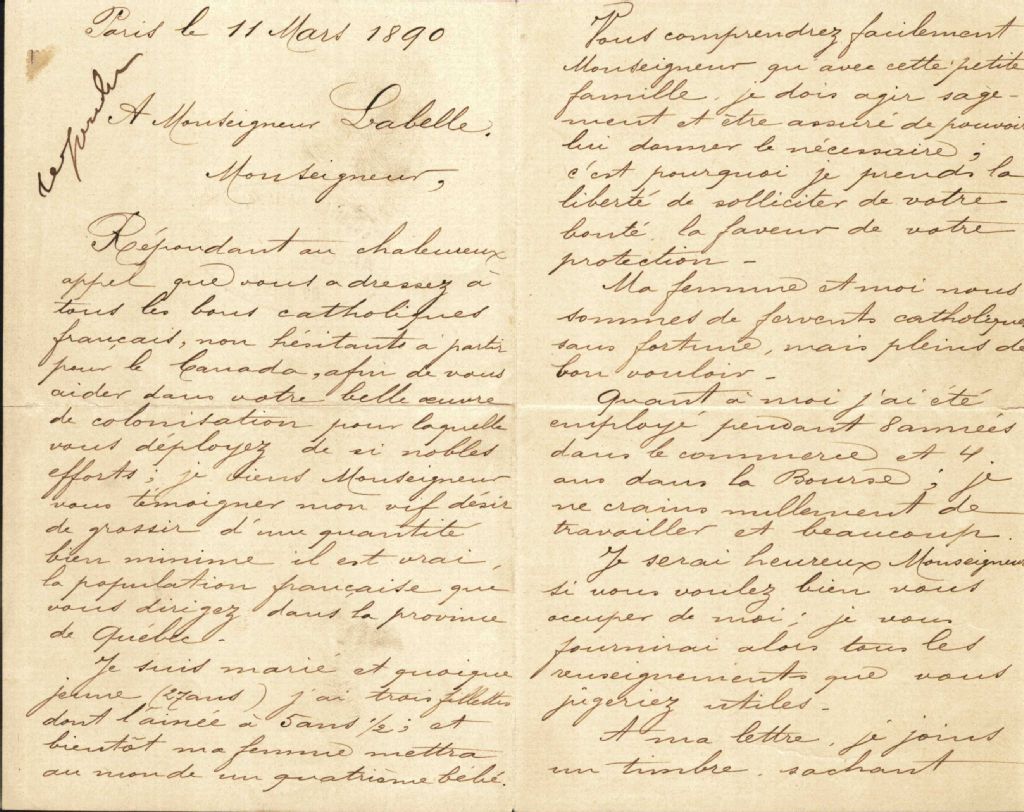 Paris le 11 Mars 1890
repondu
A Monseigneur Labelle.
Monseigneur,
Répondant au chaleureux
appel que vous adressez à
tous les bons catholiques
français, non hésitants à partir
pour le Canada, afin de vous
aider dans votre belle œuvre
de colonisation pour laquelle
vous déployez de si nobles
efforts; je viens Monseigneur
vous témoigner mon vif désir
de grossir d'une quantité
bien minime il est vrai,
la population française que
vous dirigez dans la province
de Québec -
Je suis marié et quoique
jeune (27 ans) j'ai trois fillettes
dont l'aînée à 5 ans 1/2; et
bientôt ma femme mettra
au monde un quatrième bébé.
Vous comprendrez facilement
Monseigneur qu'avec cette petite
famille, je dois agir sage-
ment et être assuré de pouvoir
lui donner le nécessaire;
c'est pourquoi je prends la
liberté de solliciter de votre
bonté, la faveur de votre
protection -
Ma femme et moi nous
sommes de fervents catholiques
sans fortune, mais pleins de
bon vouloir -
Quant à moi j'ai été
employé pendant 8 années
dans le commerce et 4
ans dans la Bourse; je
ne crains nullement de
travailler et beaucoup.
Je serai heureux Monseigneur
si vous voulez bien vous
occuper de moi; je vous
fournirai alors tous les
renseignements que vous
jugeriez utiles -
A ma lettre, je joins
un timbre, sachant